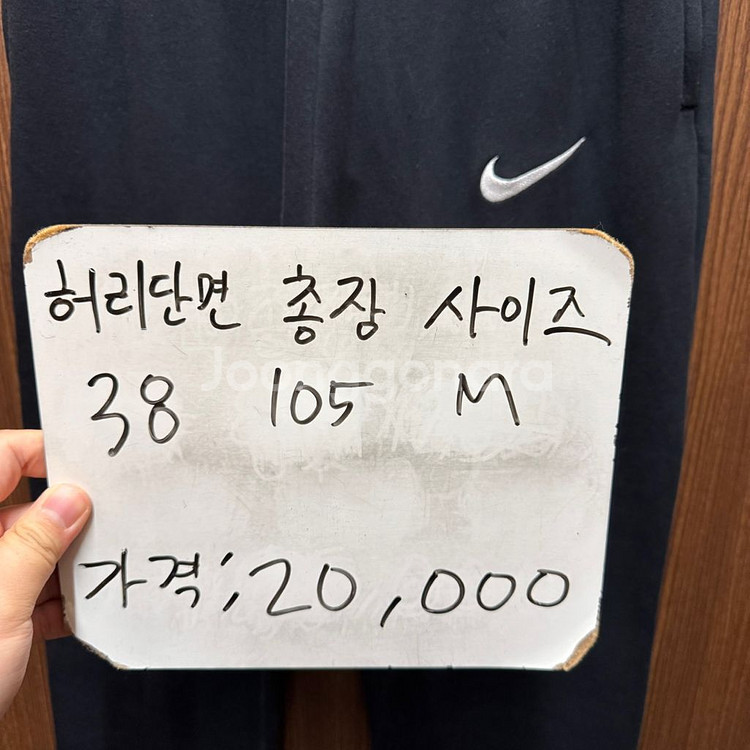 허리단면 총장 사이즈
38 105 M
Joonggonara
가격; 20,000